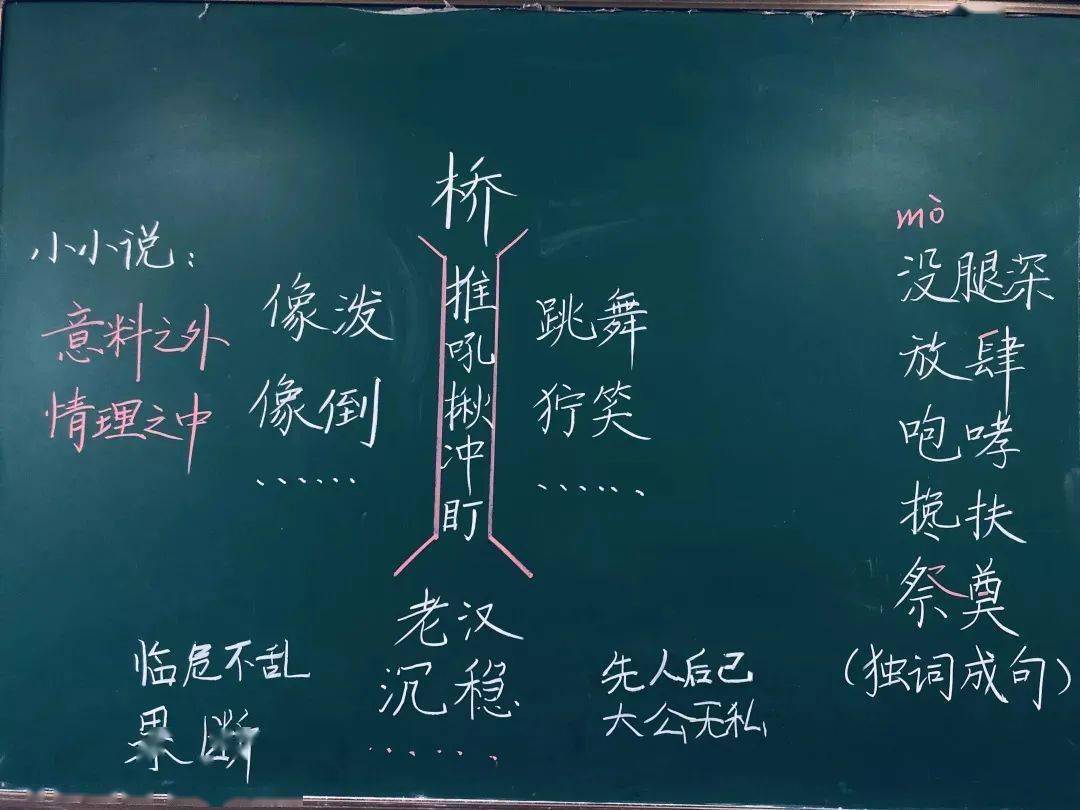 桥
小小说：
意料之外
情理之中
像泼
像倒
……
推
吼
揪
冲
盯
跳舞
狞笑
……
mò
没腿深
放肆
咆哮
搀扶
祭奠
（独词成句）
老汉
沉稳
……
临危不乱
果断
先人后己
大公无私